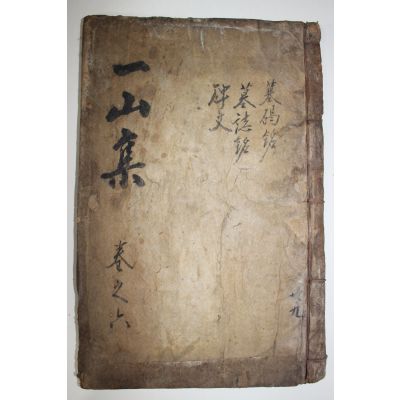 墓碣銘
墓誌銘
碑文
一山集
卷之六